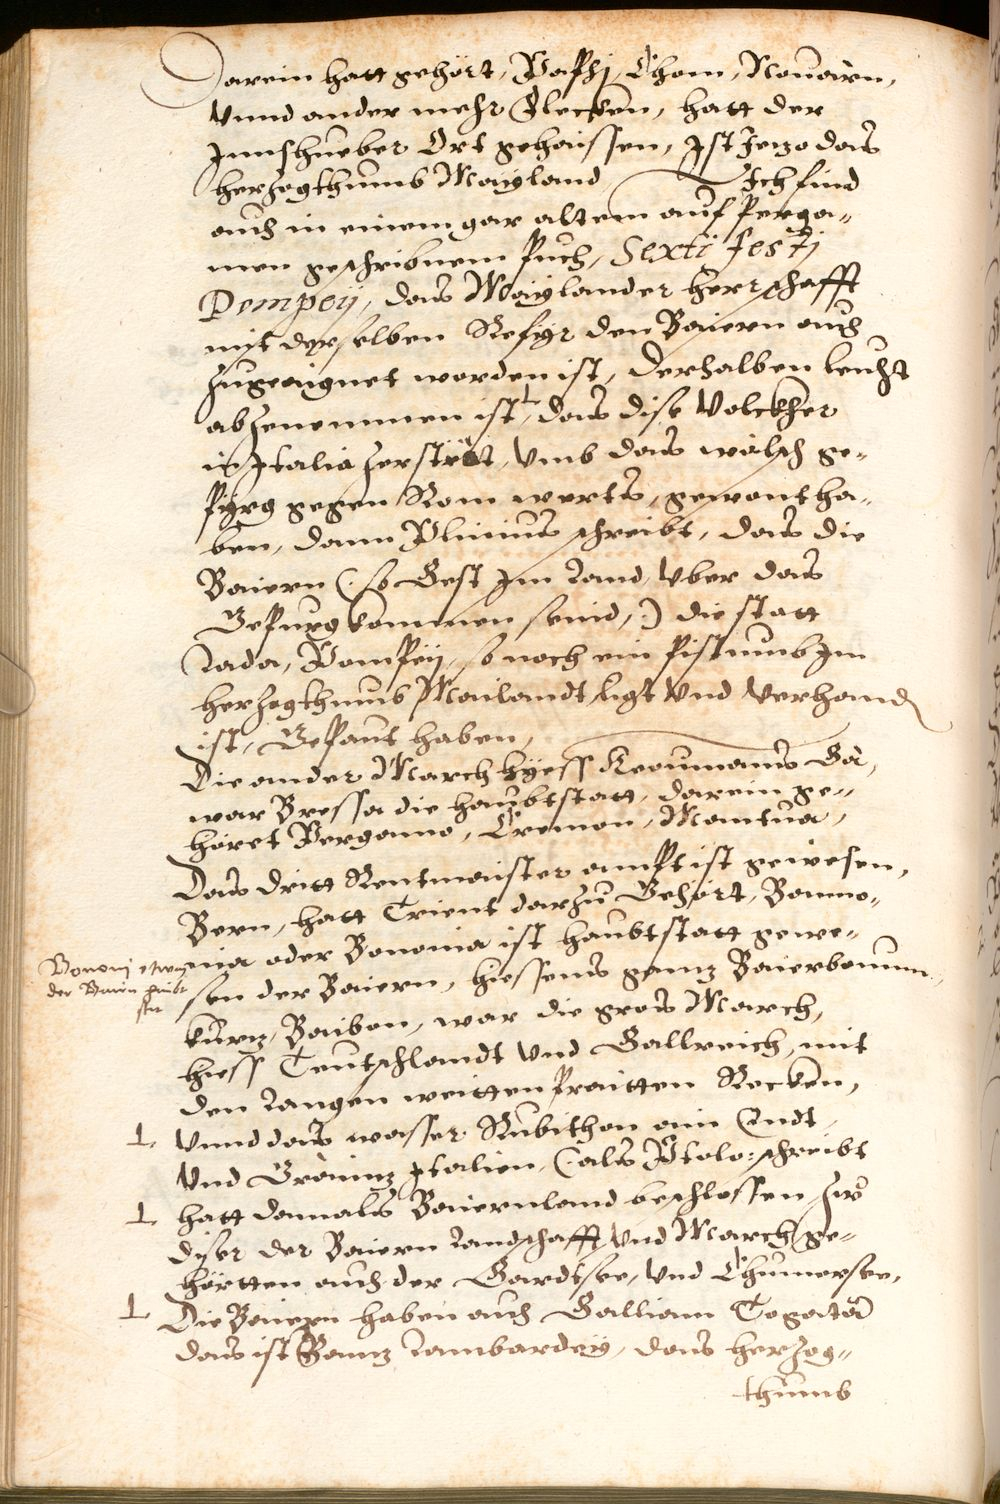 Darein hatt gehört, Paphj, Chom, Nouarn,
Vnnd ander mehr Flecken, hatt der
Innshueber Ort gehaissen, Ist Jezo das
herzogthumb Mayland Ich find
auch in einem gar altem auf Perga„
men geschribnem Puch, Sexti festj
Pompeij, das Maylander herrschafft
mit derselben Refyr den Baiern auch
zugeaignet worden ist, derhalben leucht
abzenemmen ist, das dise Volckher
in Italia zerströt, Vmb das wälsch ge„
Pyrg gegen Rom werts, gewont ha„
ben, dann Plinius schreibt, das die
Baiern (: so Erst Im Land, Vber das
Gepurg kommen seind, :) die statt
Lada, Pompeij, so noch ein Pistumb Im
herzogthumb Mailandt ligt Vnd Verhandn
ist, Gepaut haben,
Die ander March hyess Kenumanis Gä,
war Bressa die haubtstatt, darein ge„
höret Pergamo, Cremon, Mantua,
Das dritt Rentmaister ampt ist gewesen,
Bern, hatt Trient darzu Gehört, Bonno„
nia oder Bononia ist haubtstatt gewe„
sen der Baiern, hiessens ganz Baierbonum,
kurz, Baibon, war die gros March,
hiess Teutschlandt Vnd Gallreich, mit
den Langen weitten Praitten Recken,
Vnnd das wasser Rubithon ain Endt,
Vnd Gräniz Italien, (: als Ptolo: schreibt
hatt damals Baiernland beschlossen, zw
diser der Baiern Landschafft Vnd March ge„
hörtten auch der Gardtsee, Vnd Chumersee,
Die Baiern haben auch Galliam Togatā
das ist Ganz Lambardey, das herzog„
thumb
Bononj etwen
der Bairn haubt
stat